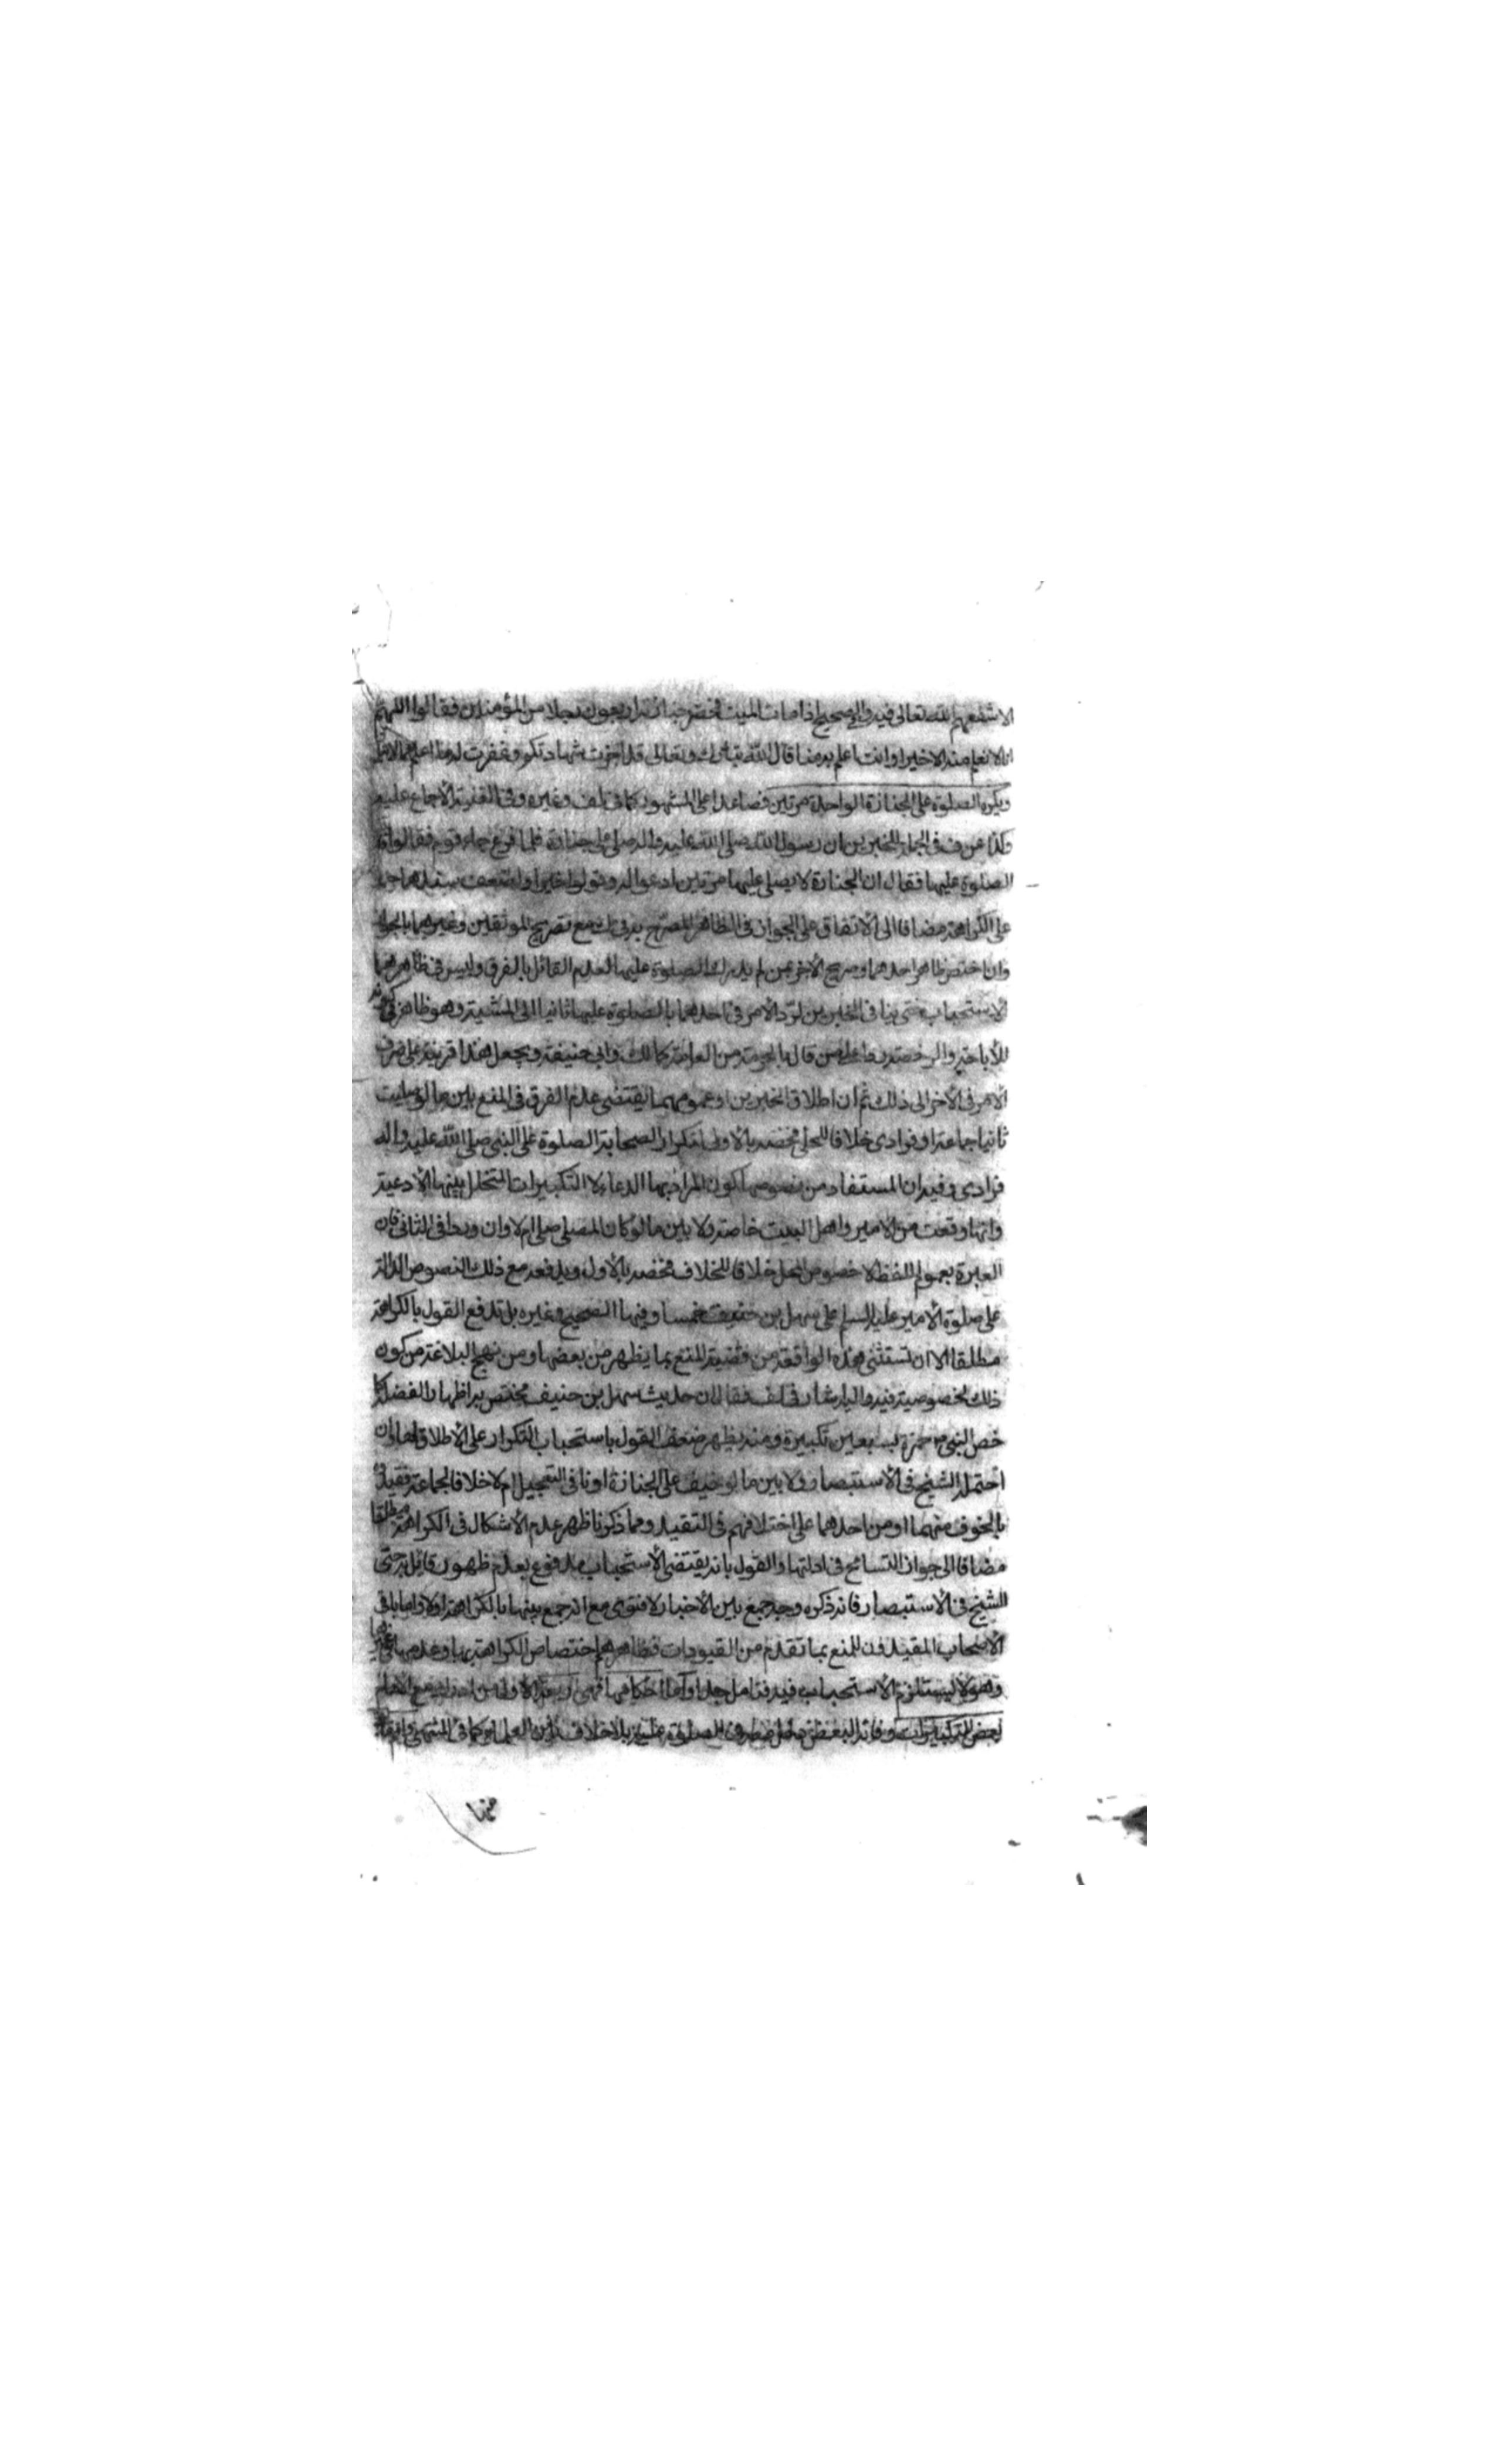 الا شفعهم الله تعالى فيه وفي الصحيح اذا مات الميت فحضر جنازته اربعون رجلا من المؤمنين فقالوا اللهم
انا لا نعلم منه الا خيرا وانت اعلم به منا قال الله تبارك وتعالى قد اجزت شهادتكم وغفرت له ما اعلم مما لا تعلمون
ويكره الصلوة على الجنازة الواحدة مرتين فصاعدا على المشهور كما في لف وغيره وفي الغنية الاجماع عليه
وكذا عن ف في الجملة للخبرين ان رسول الله صلى الله عليه واله صلى على جنازة فلما فرغ جاء قوم فقالوا فاتتنا
الصلوة عليها فقال ان الجنازة لا يصلى عليها مرتين ادعوا له وقولوا خيرا وضعف سندهما
على الكراهة مضافا الى الاتفاق على الجواز في الظاهر المصرح به في مع تصريح الموثقين وغيرهما بالجواز
وان اختص ظاهر احدهما وصريح الاخر بمن لم يدرك الصلوة عليها لعدم القائل بالفرق وليس في ظاهرهما
الاستحباب حتى ينافي الخبرين لرد الامر في احدهما بالصلوة عليها ثانيا الى المشية وهو ظاهر في كونه
للاباحة والرخصة ردا على من قال بالحرمة من العامة كمالك وابي حنيفة ويجعل هذا قرينة على صرف
الامر في الاخر الى ذلك ثم ان اطلاق الخبرين او عمومهما يقتضي عدم الفرق في المنع بين ما لو صليت
ثانيا جماعة او فرادى خلافا للحلي فخصه بالاول لتكرار الصحابة الصلوة على النبي صلى الله عليه واله
فرادى وفيه ان المستفاد من نصوصها كون المراد بها الدعاء لا التكبيرات المتخلل بينها الادعية
وانها وقعت من الامير واهل البيت خاصة ولا بين ما لو كان المصلي صلى ام لا وان وردا في الثاني فان
العبرة بعموم اللفظ لا خصوص المحل خلافا للخلاف فخصه بالاول ويدفعه مع ذلك النصوص الدالة
على صلوة الامير عليه السلم على سهل بن حنيف خمسا وفيها الصحيح وغيره بل تدفع القول بالكراهة
مطلقا الا ان تستثنى هذه الواقعة من قضية المنع بما يظهر من بعضها ومن نهج البلاغة من كون
ذلك لخصوصية فيه واليه اشار في لف فقال ان حديث سهل بن حنيف مختص به اظهارا لفضله كما
خص النبي ص حمزة بسبعين تكبيرة ومنه يظهر ضعف القول باستحباب التكرار على الاطلاق لها وان
احتمله الشيخ في الاستبصار ولا بين ما لو خيف على الجنازة او نافى التعجيل ام لا خلافا لجماعة فقيدوه
بالخوف منهما او من احدهما على اختلافهم في التقييد ومما ذكرنا ظهر عدم الاشكال في الكراهة مطلقا
مضافا الى جواز التسامح في ادلتها والقول بانه يقتضي الاستحباب مدفوع بعدم ظهور قائل به حتى
الشيخ في الاستبصار فانه ذكره وجه جمع بين الاخبار لا فتوى مع انه جمع بينها بالكراهة اولا واما باقي
الاصحاب المقيدون للمنع بما تقدم من القيودات فظاهرهم اختصاص الكراهة بها وعدمها في غيرها
وهو لا يستلزم الاستحباب فيه فتامل جدا واما احكامها فهي اربعة الاول من ادرك مع الامام
بعض التكبيرات وفاته البعض الصلوة عليه بلا خلاف بين العلماء كما في المنتهى